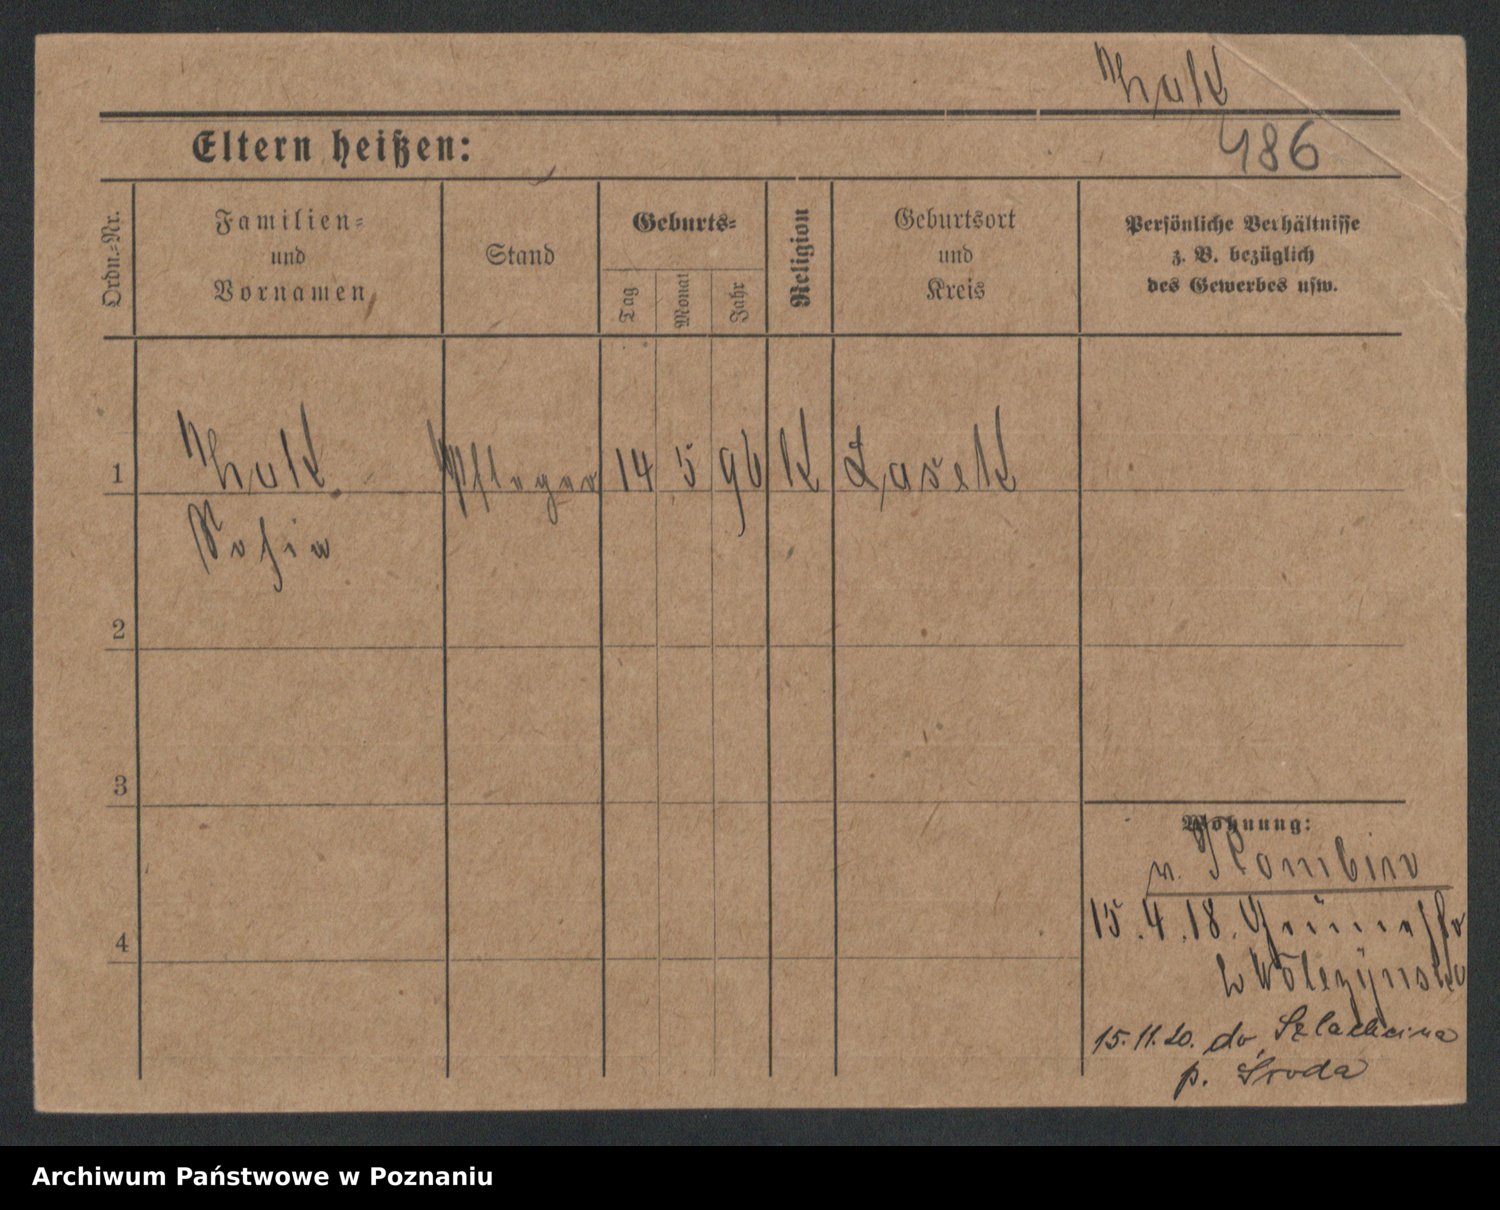 486
Eltern heißen:
Ordn.-Nr.
Familien-
und
Vornamen
Stand
Geburts-
Tag
Monat
Jahr
Religion
Geburtsort
und
Kreis
Persönliche Verhältnisse
z. B. bezüglich
des Gewerbes usw.
1
14 5 96 K Lasek
Sofia
2
3
4
Wohnung:
15.4.18.
15.11.20. do Szlachcina
p. Środa
Archiwum Państwowe w Poznaniu